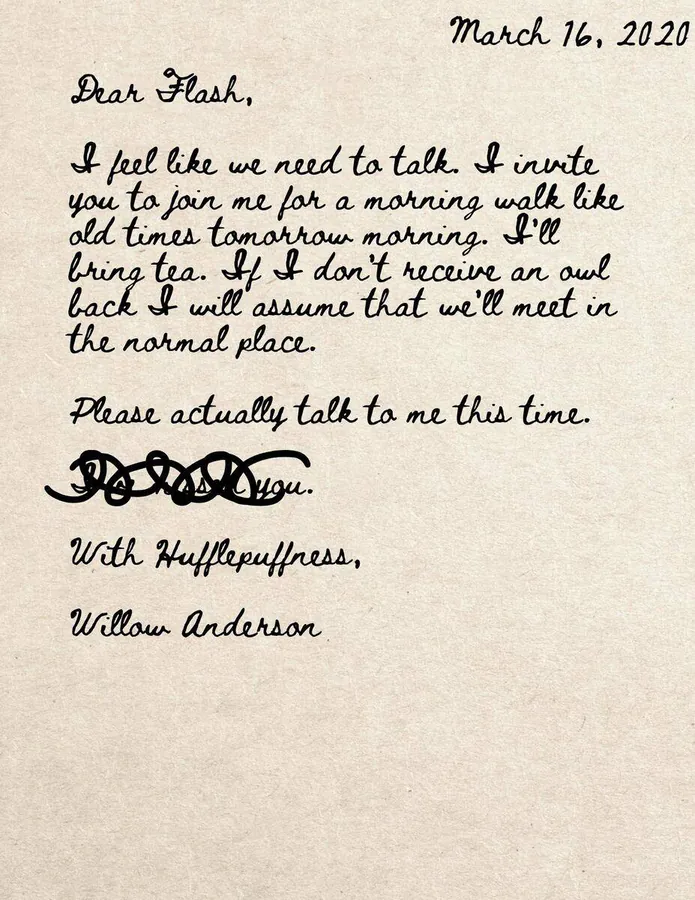 March 16, 2020
Dear Flash,
I feel like we need to talk. I invite
you to join me for a morning walk like
old times tomorrow morning. I'll
bring tea. If I don't receive an owl
back I will assume that we'll meet in
the normal place.
Please actually talk to me this time.
you.
With Hufflepuffness,
Willow Anderson